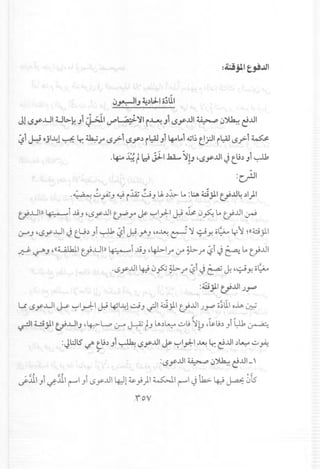 الدفوع المؤقتة:
المادة الحادية والسبعون
الدفع ببطلان صحيفة الدعوى أو بعدم الاختصاص المحلي أو بإحالة الدعوى إلى
محكمة أخرى لقيام النزاع ذاته أمامها أو لقيام دعوى أخرى مرتبطة بها يجب إبداؤه قبل أي
طلب أو دفاع في الدعوى، وإلا سقط الحق فيما لم يُبْدَ منها.
الشرح:
المراد بالدفوع المؤقتة هنا: ما حدد لها وقت تقدم فيه وتفوت بمضيه.
فمن الدفوع ما يكون محله قبل الجواب على موضوع الدعوى، وقد أسميتها «الدفوع
المؤقتة»؛ لأنها مغياة بوقت لا تُسمع بعده، وهو قبل أي طلب أو دفاع في الدعوى، ومن
الدفوع ما يصح في أي مرحلة من مراحلها، وقد أسميتها «الدفوع المطلقة»، وهي غير
مغياة بوقت، بل تصح في أي مرحلة تكون فيها الدعوى.
صور الدفوع المؤقتة:
تبين هذه المادة صور الدفوع المؤقتة التي وقت إبدائها قبل الجواب على الدعوى مما
يتضمن طلباً أو دفاعاً، وإلا فات ميعادها ولم تقبل من صاحبها، والدفوع المؤقتة التي
يفوت ميعاد الدفع بها بعد الجواب على الدعوى بطلب أو دفاع هي كالتالي:
١- الدفع ببطلان صحيفة الدعوى:
كأن يحصل فيها خطأ في اسم المحكمة المرفوعة إليها الدعوى أو اسم المدَّعي أو المدَّعى
٣٥٧